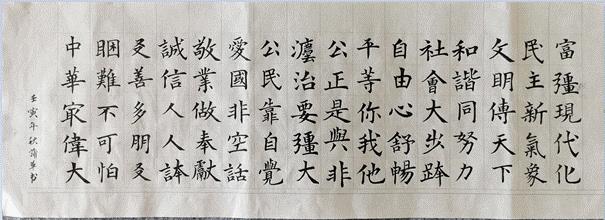 富彊現代化
民主新氣象
文明傳天下
和諧同努力
社會大步跨
自由心舒暢
平等你我他
公正是與非
灋治要彊大
公民靠自覺
愛國非空話
敬業做奉獻
誠信人人誇
友善多朋友
睏難不可怕
中華家偉大
壬寅年秋